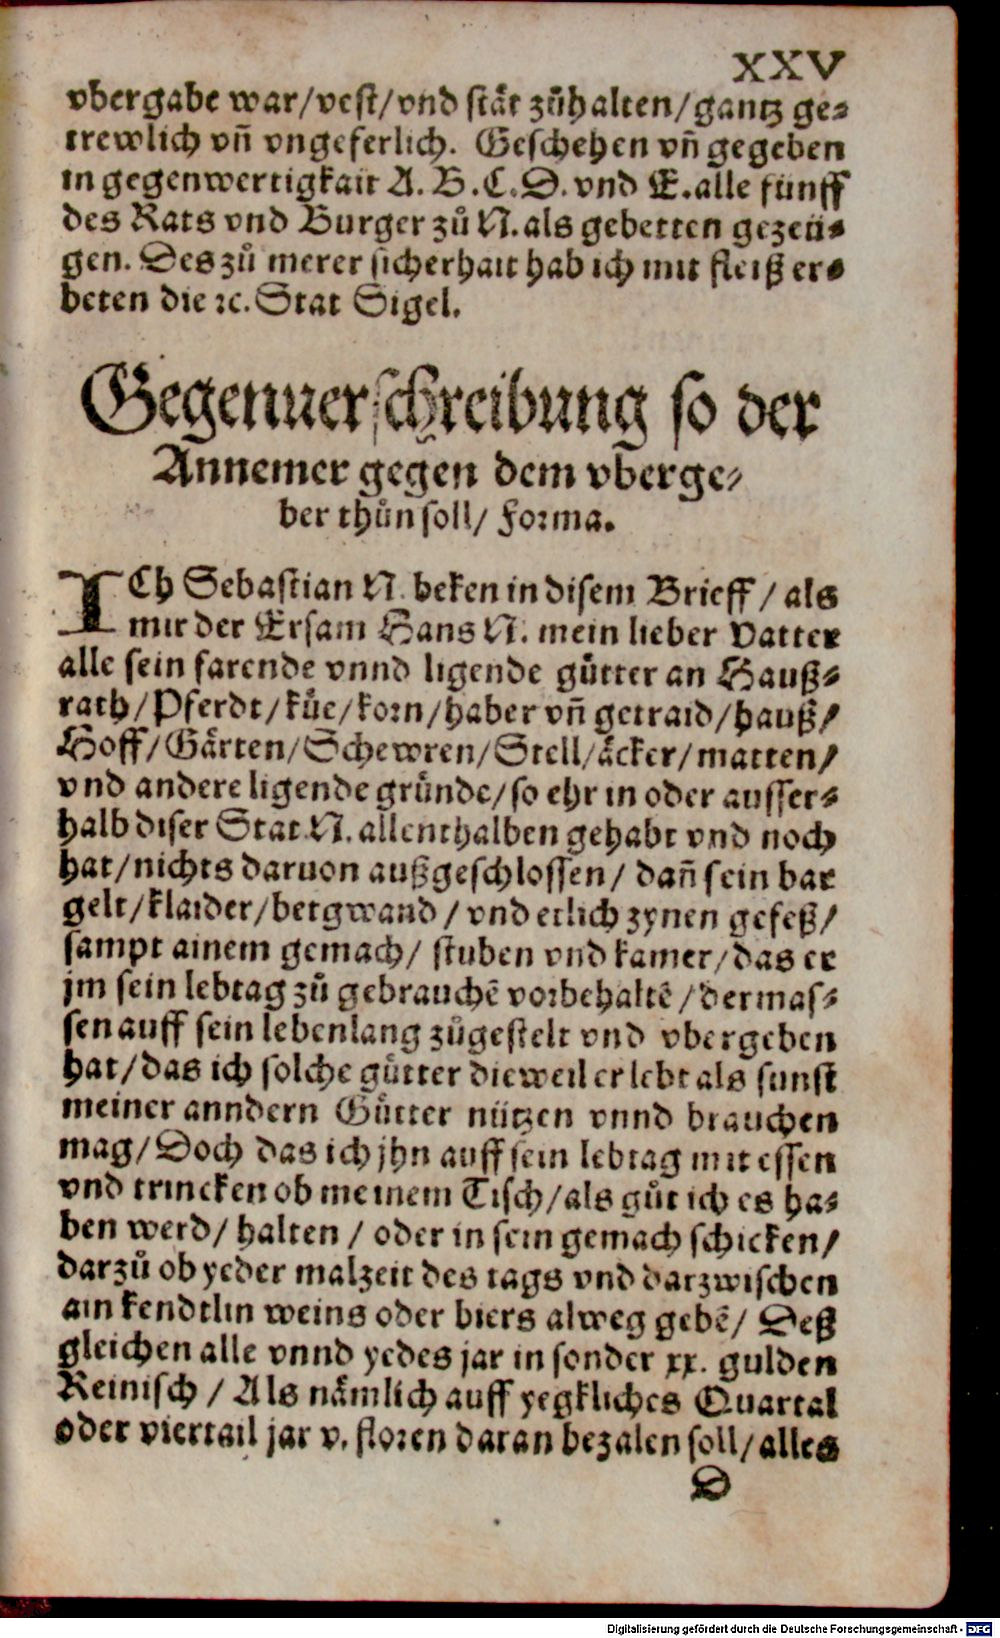 XXV
vbergabe war/vest/vnd stät zůhalten/gantz ge-
trewlich vñ vngeferlich. Geschehen vñ gegeben
in gegenwertigkait A. B. C. D. vnd E. alle fünff
des Rats vnd Burger zů N. als gebetten gezeü-
gen. Des zů merer sicherhait hab ich mit fleiß er-
beten die ꝛc. Stat Sigel.
Gegenuerschreibung so der
Annemer gegen dem vberge-
ber thůn soll/ Forma.
ICh Sebastian N. beken in disem Brieff / als
mir der Ersam Hans N. mein lieber Vatter
alle sein farende vnnd ligende gütter an Hauß-
rath/Pferdt/küe/korn/haber vñ getraid/hauß/
Hoff/Gärten/Schewren/Stell/äcker/matten/
vnd andere ligende gründe/so ehr in oder ausser-
halb diser Stat N. allenthalben gehabt vnd noch
hat/nichts daruon außgeschlossen/ dañ sein bar
gelt/klaider/betgwand / vnd etlich zynen gefeß/
sampt ainem gemach/ stuben vnd kamer/das er
jm sein lebtag zů gebrauchē vorbehaltē /dermas-
sen auff sein lebenlang zůgestelt vnd vbergeben
hat/das ich solche gütter dieweil er lebt als sunst
meiner anndern Gütter nützen vnnd brauchen
mag/Doch das ich jhn auff sein lebtag mit essen
vnd trincken ob meinem Tisch/als gůt ich es ha-
ben werd/ halten / oder in sein gemach schicken/
darzů ob yeder malzeit des tags vnd darzwischen
ain kendtlin weins oder biers alweg gebē/ Deß
gleichen alle vnnd yedes jar in sonder xx. gulden
Reinisch / Als nämlich auff yegkliches Quartal
oder viertail jar v. floren daran bezalen soll/alles
D
Digitalisierung gefördert durch die Deutsche Forschungsgemeinschaft - DFG